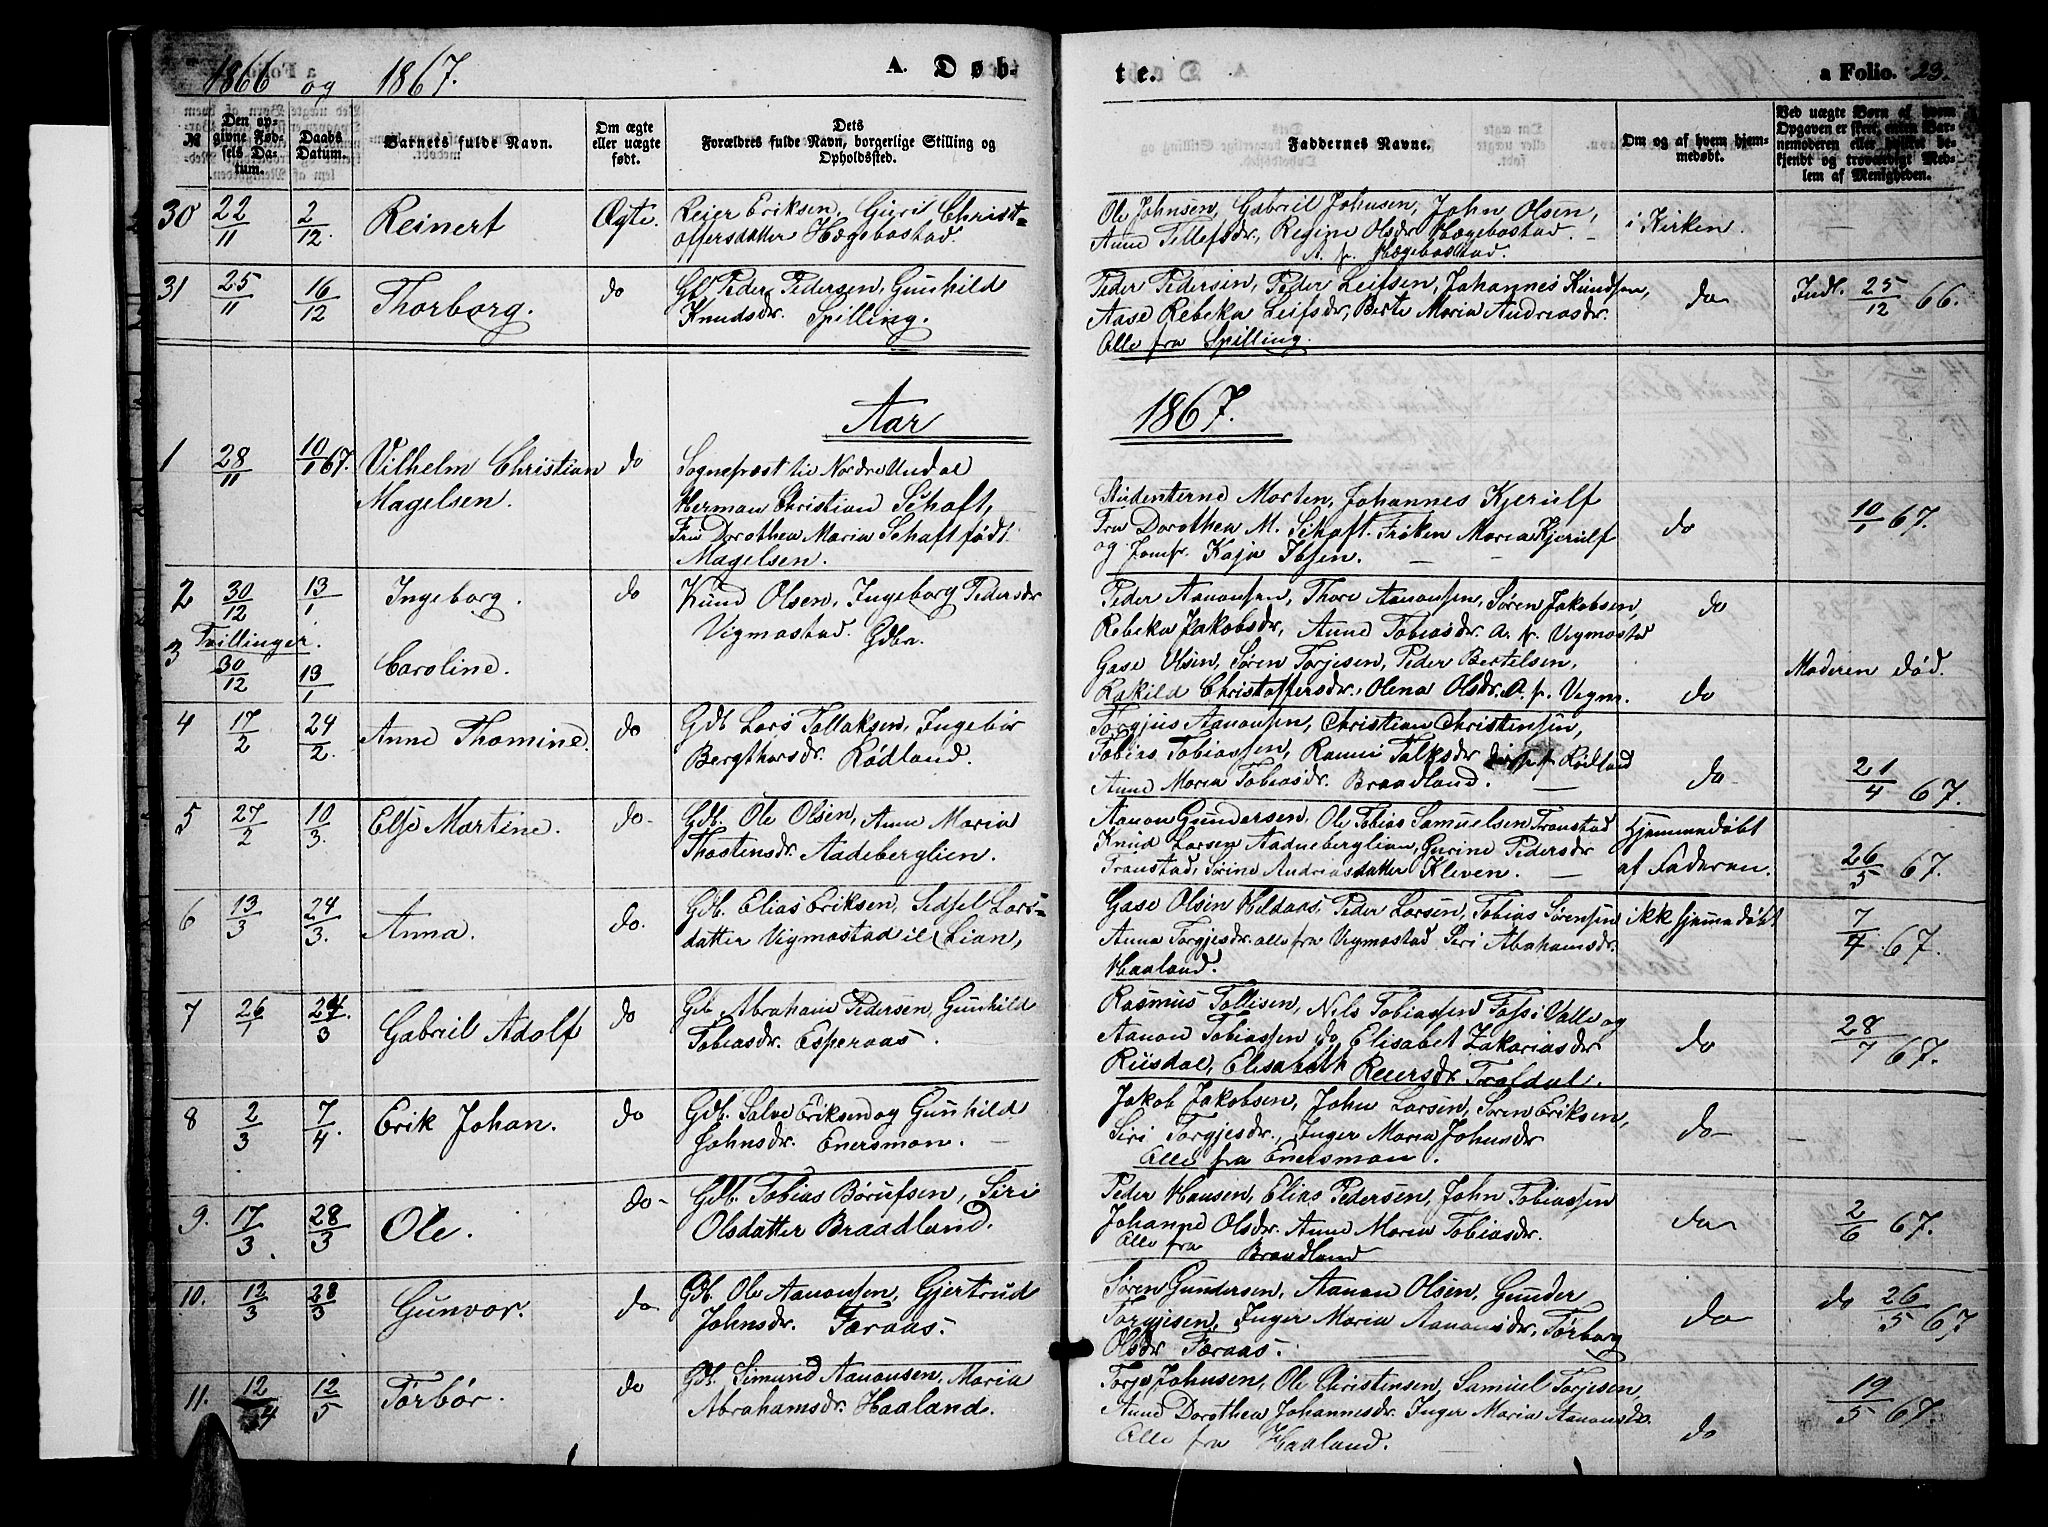 1866 og 1867.
A. Døb-
te.
a Folio. 23.
№
Den opgivne Fødsels Datum.
Daabs Datum.
Barnets fulde Navn.
Om ægte eller uægte født.
Dets Forældres fulde Navn, borgerlige Stilling og Opholdssted.
Faddernes Navne.
Om og af hvem hjemmedøbt.
Ved uægte Børn af hvem Opgaven er skeet, enten Barnemoderen eller hvilket bekjendt og troværdigt Medlem af Menigheden.
30 22/11 2/12. Reinert Ægte. Reier Eriksen, Guril Christ-
offersdatter Hægebostad.
Ole Johnsen, Gabriel Johnsen, John Olsen,
Anne Tellefsdr, Regine Olsdr Hægebostad. i Kirken.
A. fr. Hægebostad.
31 25/11 16/12 Thorborg. do Gb Peder Pedersen, Gunhild
Knudsdr. Spilling.
Peder Pedersen, Peder Leifsen, Johannes Knudsen,
Aase Rebeka Leifsdr, Berte Maria Andreasdr. do Indl. 25/12 66.
Alle fra Spilling.
Aar
1867.
1 28/11 10/1 67. Vilhelm Christian do
Magelsen.
Sognepræst til Nordre Undal
Herman Christian Schaft,
Fru Dorothea Maria Schaft født
Magelsen.
Studenterne Morten, Johannes Kjerulf
Fru Dorothea M. Schaft. Frøken Maria Kjerulf do 10/1 67.
og Jomfr. Kaja Ibsen.
2 30/12 13/1 Ingeborg. do Knud Olsen, Ingeborg Pedersdr
Vigmostad. Gdbr.
Peder Aanonsen, Thore Aanonsen, Søren Jakobsen, do
Rebeka Jakobsdr, Anne Tobiasdr. A. fr. Vigmostad
3 Tvillinger.
30/12 13/1 Caroline.
Gase Olsen, Søren Torjesen, Peder Bertelsen,
Rakild Christoffersdr., Olena Olsdr. A. fr. Vigm. do Moderen død.
4 17/2 24/2. Anne Thomine. do Gdb Lars Tollaksen, Ingebør
Bergthorsdr. Rødland.
Torgjus Aanonsen, Christian Christensen,
Tobias Tobiassen, Rannei Falksdr Rødland
Anne Maria Tobiasdr. Braadland. do 21/4 67.
5 27/2 10/3. Else Martine. do- Gdb. Ole Olsen, Anne Maria
Thostensdr. Aadeberglien.
Aanon Gundersen, Ole Tobias Samuelsen Tronstad
Knud Larsen Aadneberglian, Gurine Pedersdr
Tronstad, Sørine Andreasdatter Kleven.
Hjemmedøbt
af Faderen. 26/5 67.
6 13/3 24/3. Anna. do. Gdb. Elias Eriksen, Sidsel Lars-
datter Vigmostad il Lian,
Gase Olsen Heldaas, Peder Larsen, Tobias Sørensen ikke hjemmedøbt
Anna Torgjesdr. alle fra Vigmostad Siri Abrahamsdr. 7/7 67.
Haaland.
7 26/1 24/3 Gabriel Adolf do Gdb Abraham Pedersen, Gunhild
Tobiasdr. Esperaas.
Rasmus Tollisen, Nils Tobiassen Foss i Valle og
Aanon Tobiassen do, Elisabet Zakariasdr do 28/7 67.
Riisdal, Elisabeth Reiersdr. Troldal.
8 2/3 7/4. Erik Johan. do Gdb. Salve Eriksen og Gunhild
Johnsdr. Enersmon.
Jakob Jakobsen, John Larsen, Søren Eriksen,
Siri Torgjesdr., Inger Maria Johnsdr do-
Alle fra Enersmon.
9. 17/3. 28/3 Ole. do- Gdb. Tobias Børufsen, Siri
Olsdatter Braadland.
Peder Hansen, Elias Pedersen, John Tobiassen
Johanne Olsdr. Anne Maria Tobiasdr. do 2/6 67.
Alle fra Braadland
10. 12/3 28/3 Gunvor. do Gdb. Ole Aanonsen, Gjertrud
Johnsdr. Færaas.
Søren Gundersen, Aanon Olsen, Gunder
Torgjesen, Inger Maria Aanonsdr, Tørborg do do 26/5 67,
Olsdr Færaas.
11. 12/4 12/5 Tørbør. do Gdb. Simund Aanonsen, Maria
Abrahamsdr. Haaland.
Torje Johnsen, Ole Christensen, Samuel Torjesen,
Anne Dorothea Johannesdr. Inger Maria Aanonsdr. do 19/5 67.
Alle fra Haaland.